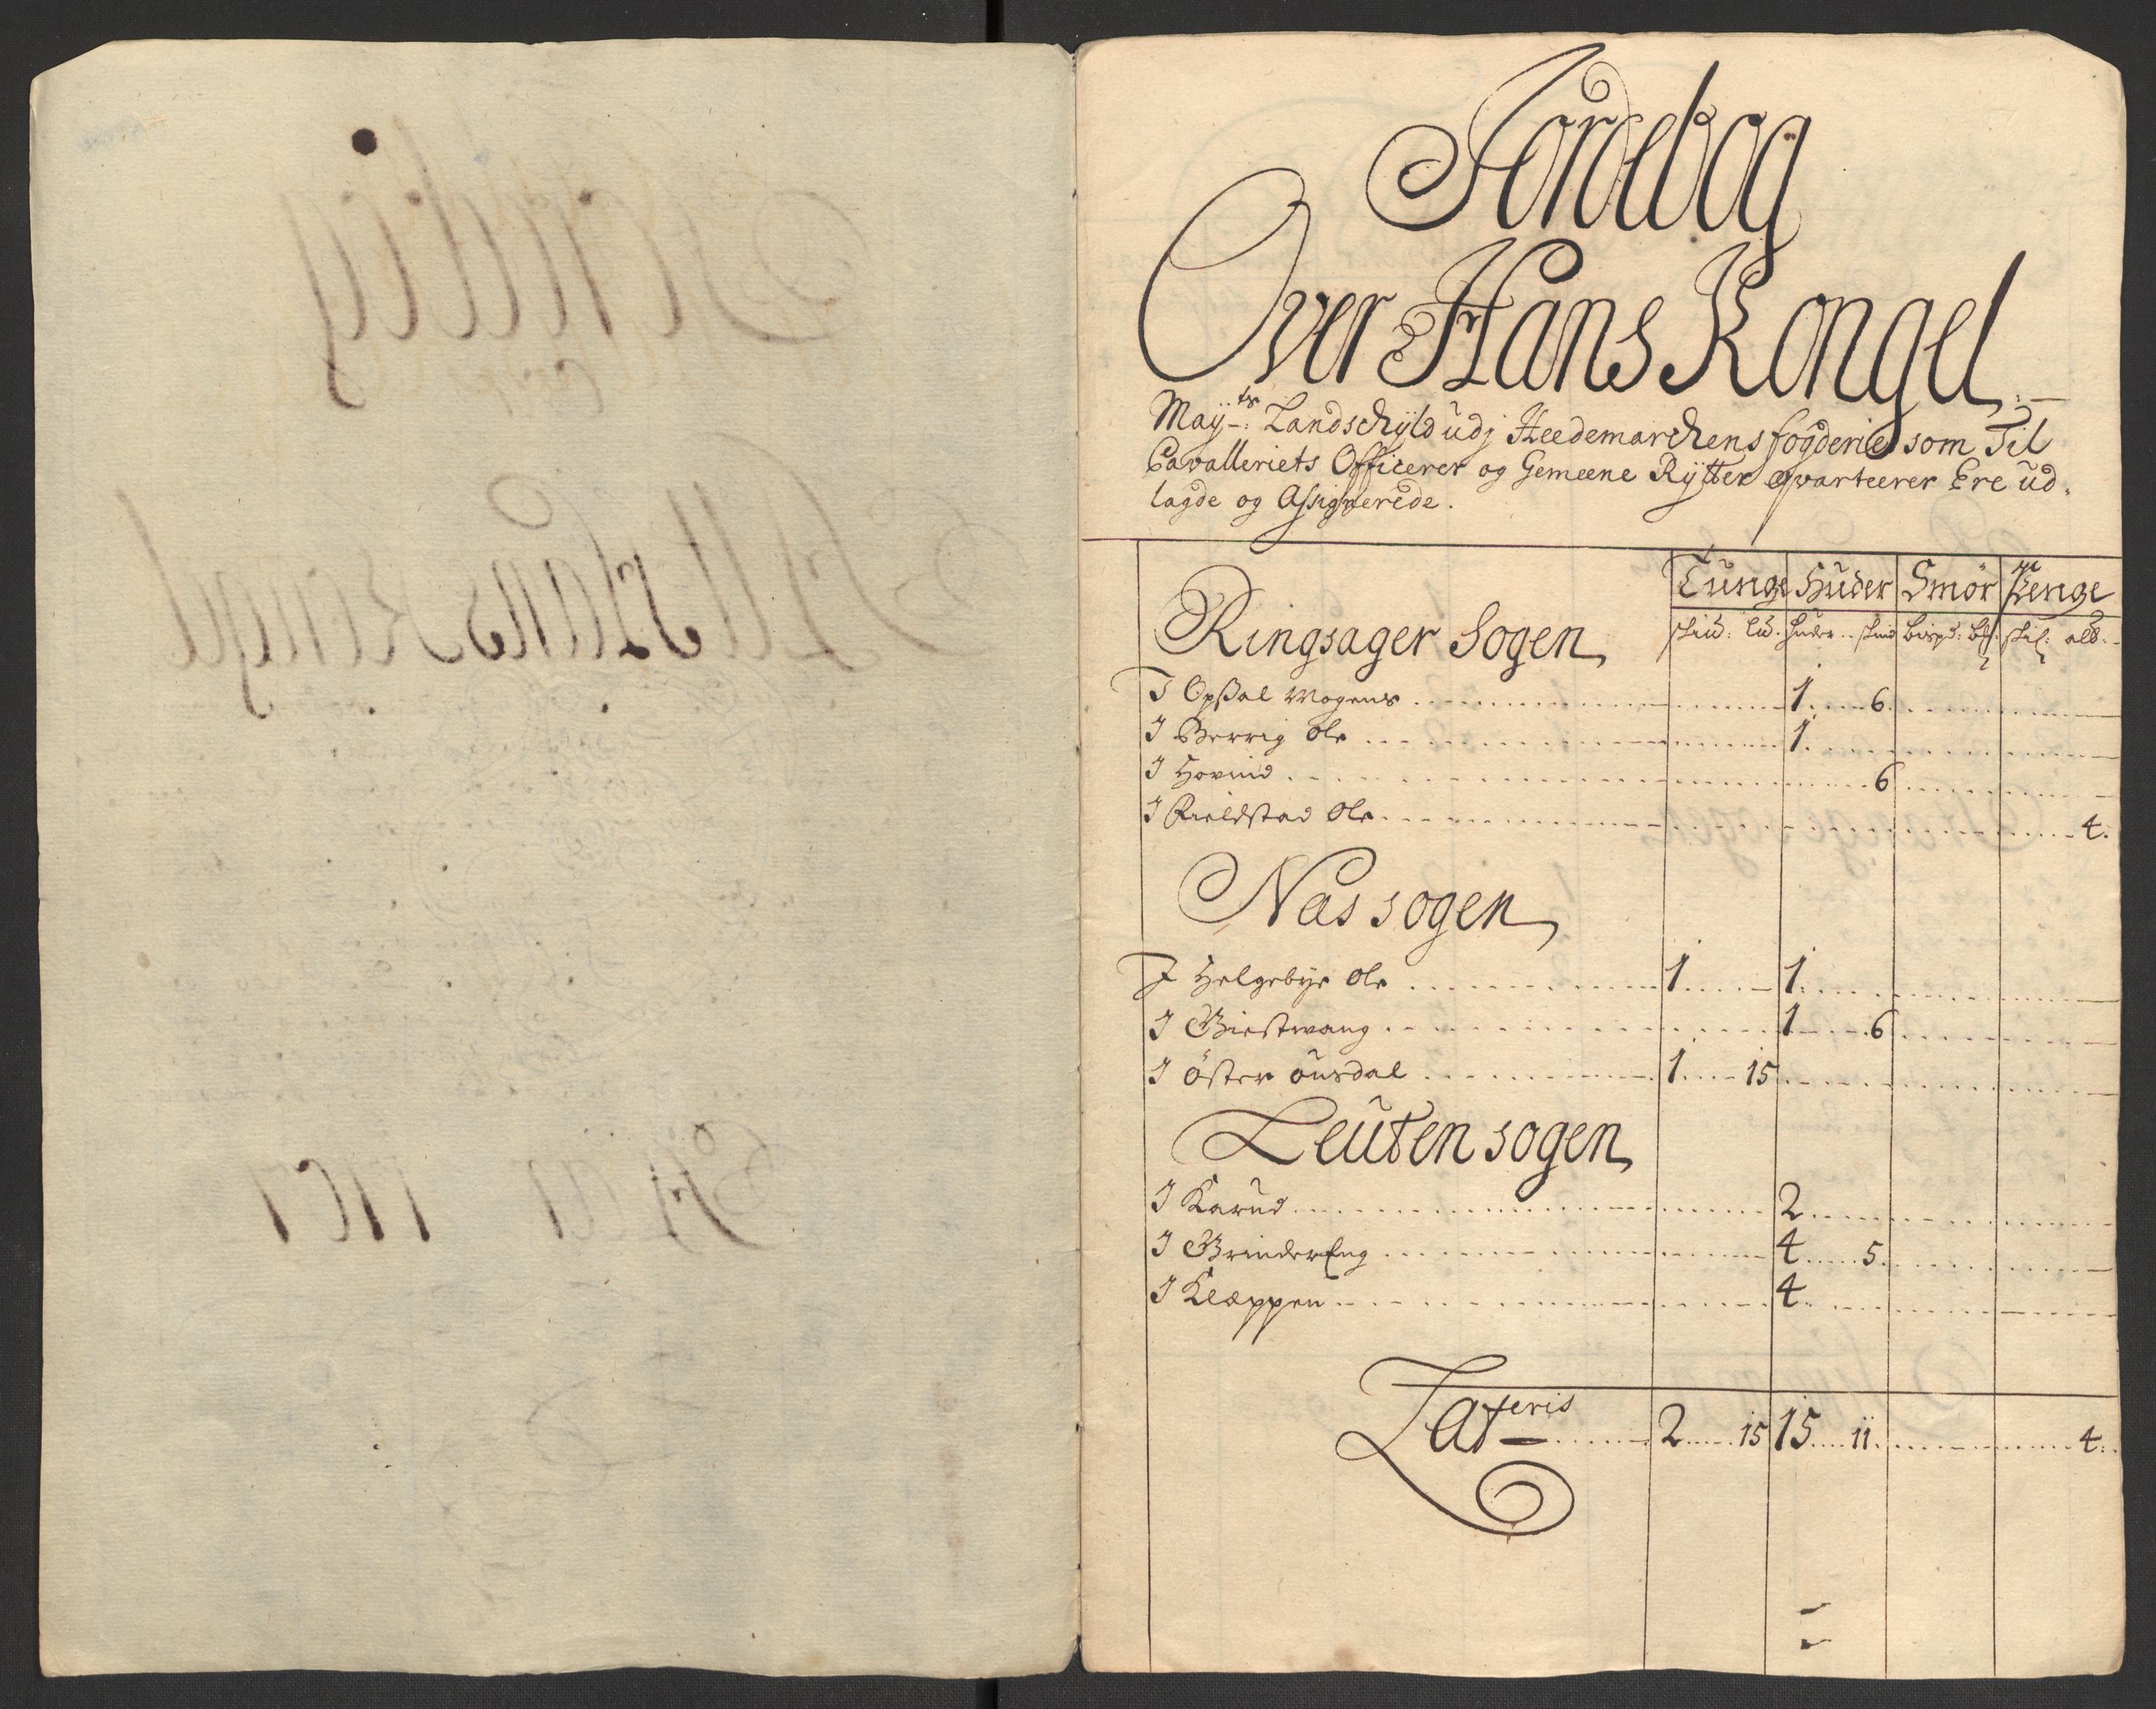 Jordebog
Over Hans Kongel.
Maÿ:ts Landschÿld udj Heedemarchens fogderie som Til
Cavalleriets Officerer og Gemeene Rÿtter qvarteerer Ere ud,
lagde og Assignerede.
Tunge Huder Smör Penge
skiud: lid. huder.. skind bispd: bs: skil: alb.
Ringsager Sogen
J Opsal Mogens 1 6
J Berrig Ole 1
J Hovind 6
J Kieldstad Ole 4.
Næs sogen
J Helgebÿe Ole 1 1
J Biestvang 1 6
J öster ousdal 1 15
Leuten sogen
J Karud 2
J BrinderEng 4 5
J Klæppen 4
Lateris 2 15 15 11 4